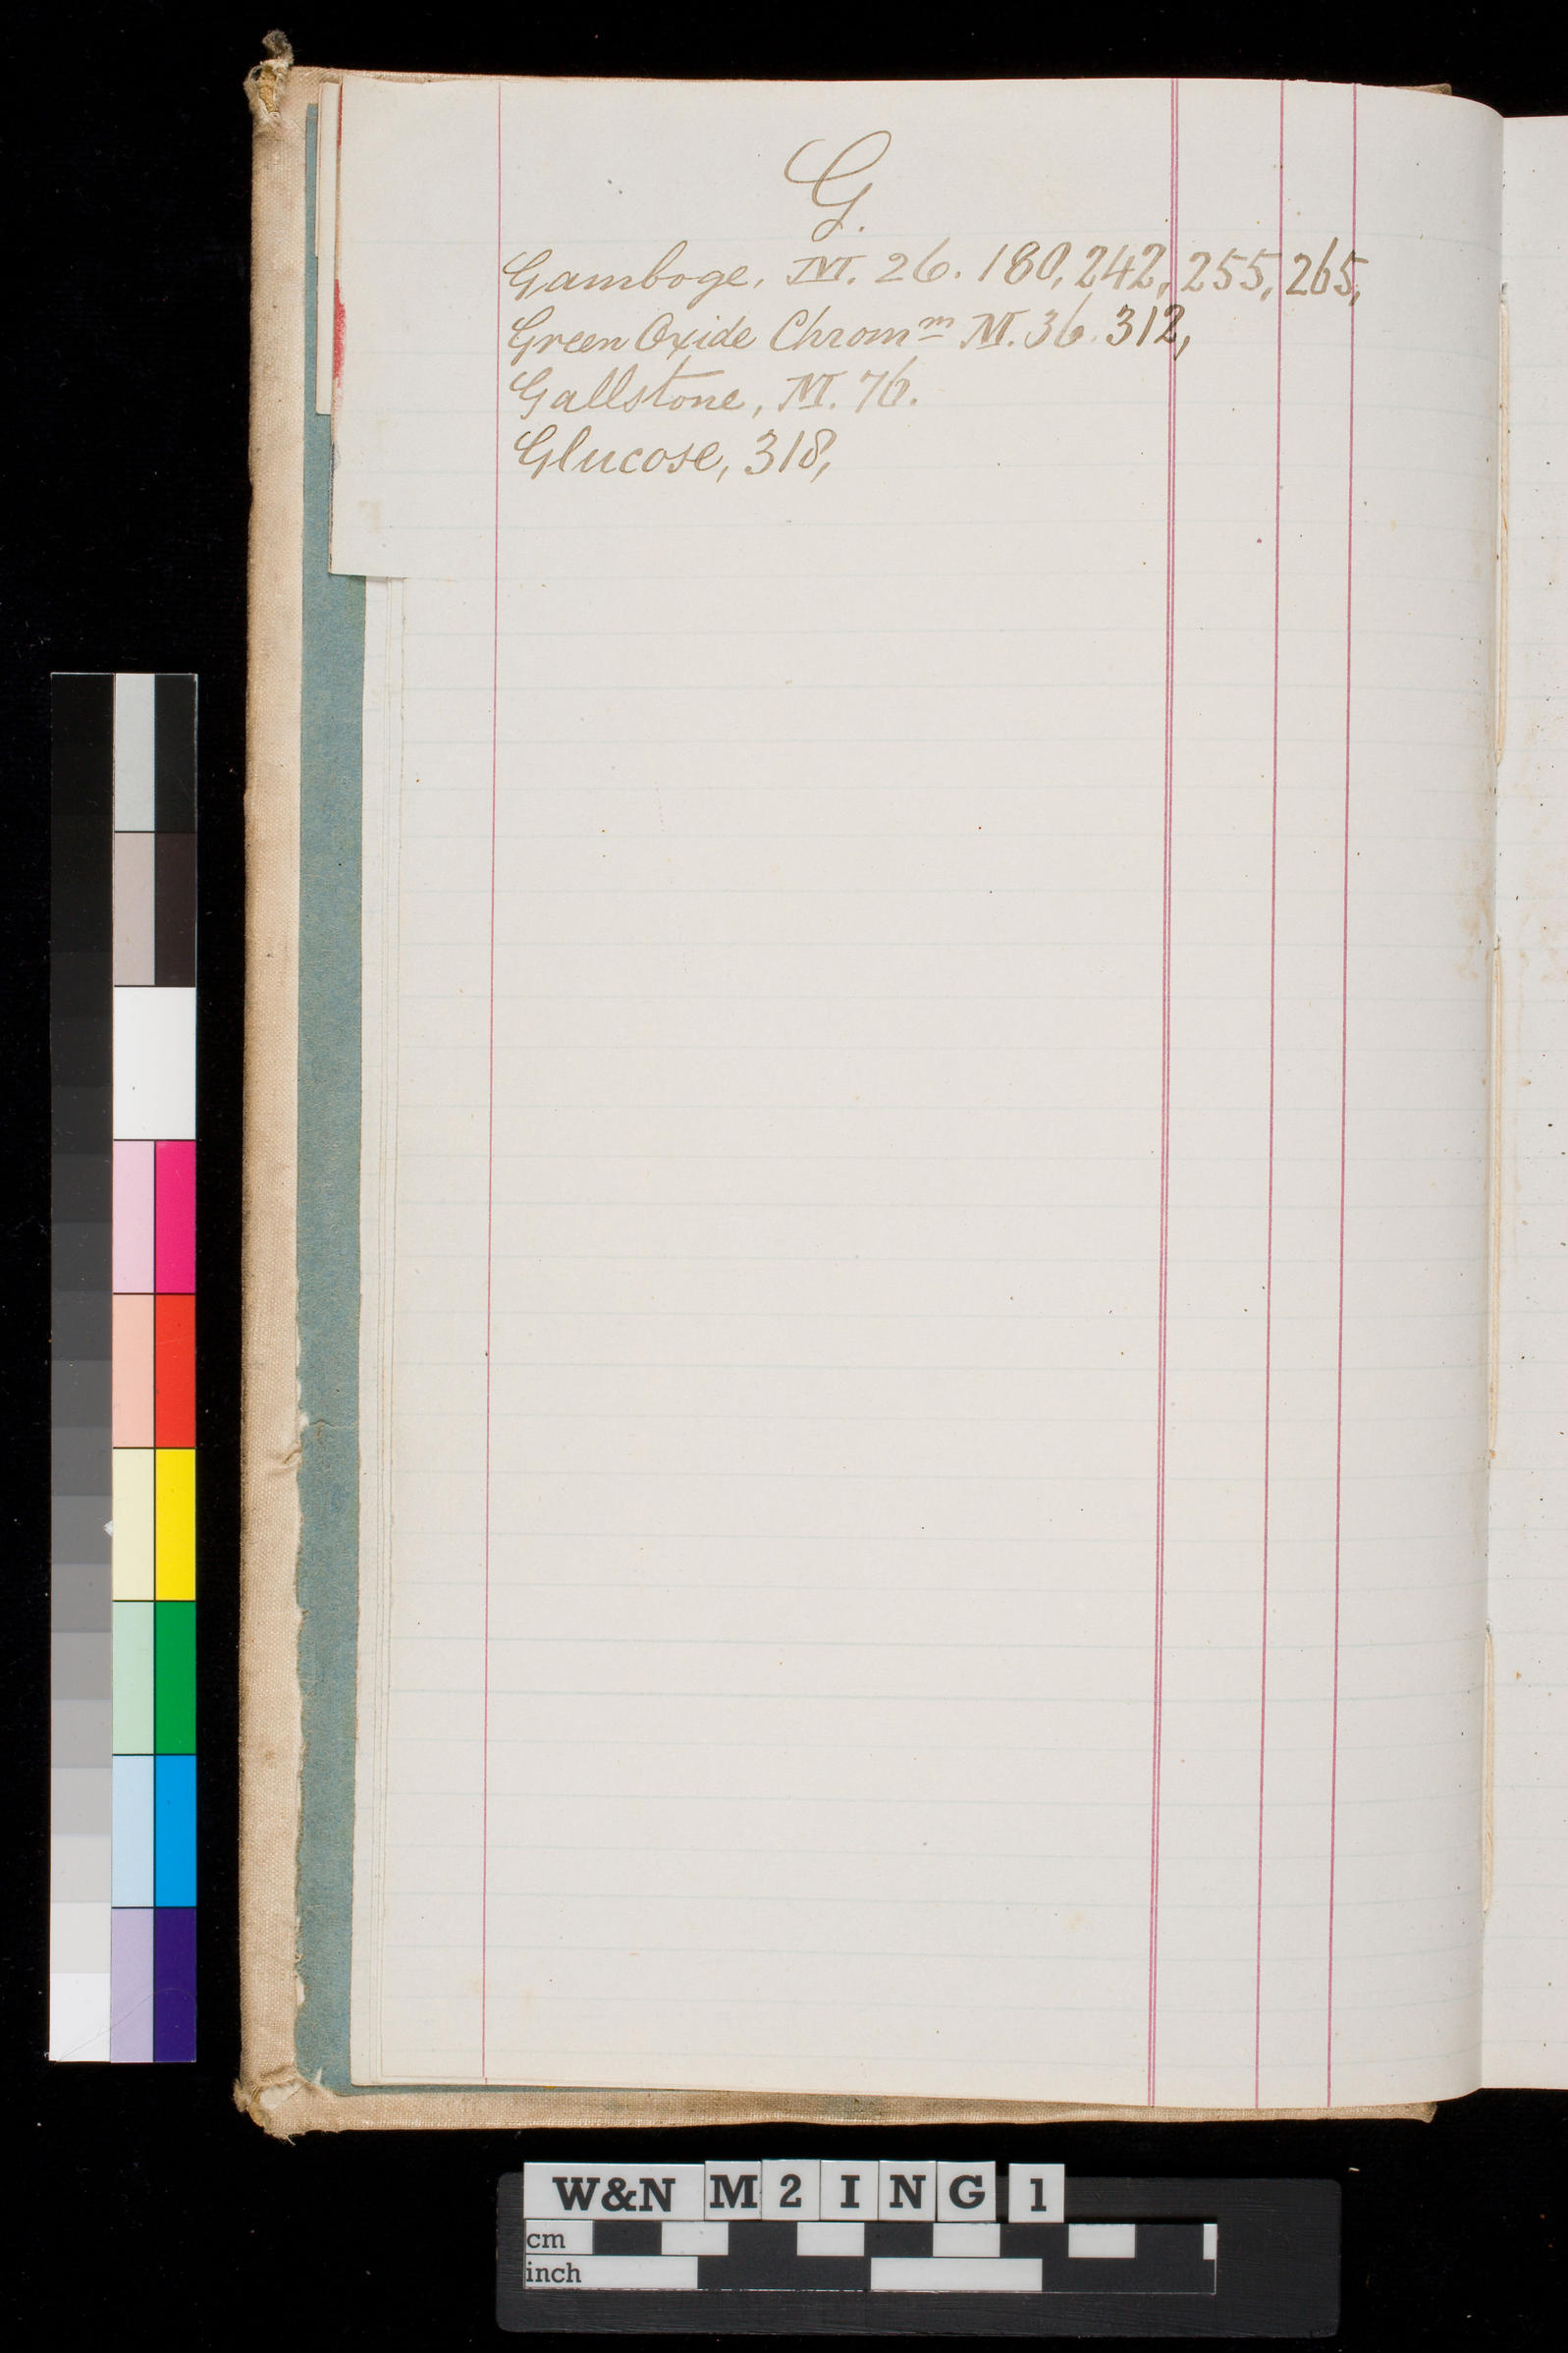 G.
Gamboge, M. 26. 180, 242, 255, 265,
Green Oxide Chromm M. 36. 312,
Gallstone, M. 76.
Glucose, 318,
W&N M 2 I N G 1
cm
inch